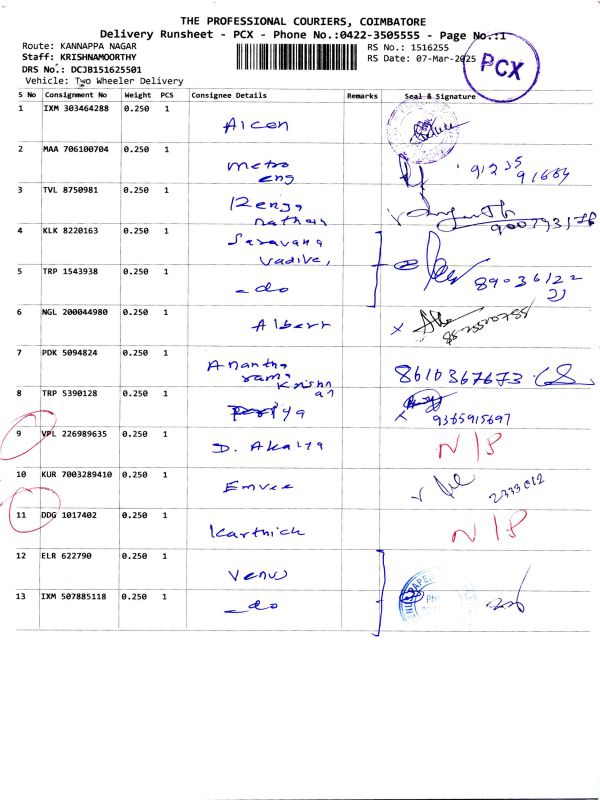 THE PROFESSIONAL COURIERS, COIMBATORE
Delivery Runsheet - PCX - Phone No.:0422-3505555 - Page No.:1
Route: KANNAPPA NAGAR
RS No.: 1516255
Staff: KRISHNAMOORTHY
RS Date: 07-Mar-2025
PCX
DRS No.: DCJB151625501
Vehicle: Two Wheeler Delivery
S No Consignment No Weight PCS Consignee Details Remarks Seal & Signature
1 IXM 303464288 0.250 1
Alcon
2 MAA 706100704 0.250 1
Metro
eng
91235
91664
3 TVL 8750981 0.250 1
Renga
nathan
900793176
4 KLK 8220163 0.250 1
Saravana
Vadivel
5 TRP 1543938 0.250 1
- do
89036122
21
6 NGL 200044980 0.250 1
Albert
7 PDK 5094824 0.250 1
Anantha
rama
Krishn
an
8610367673
8 TRP 5390128 0.250 1
9365915697
9 VPL 226989635 0.250 1
D. Akalya
N/P
10 KUR 7003289410 0.250 1
Emvee
2333012
11 DDG 1017402 0.250 1
Karthick
N/P
12 ELR 622790 0.250 1
Venus
13 IXM 507885118 0.250 1
- do